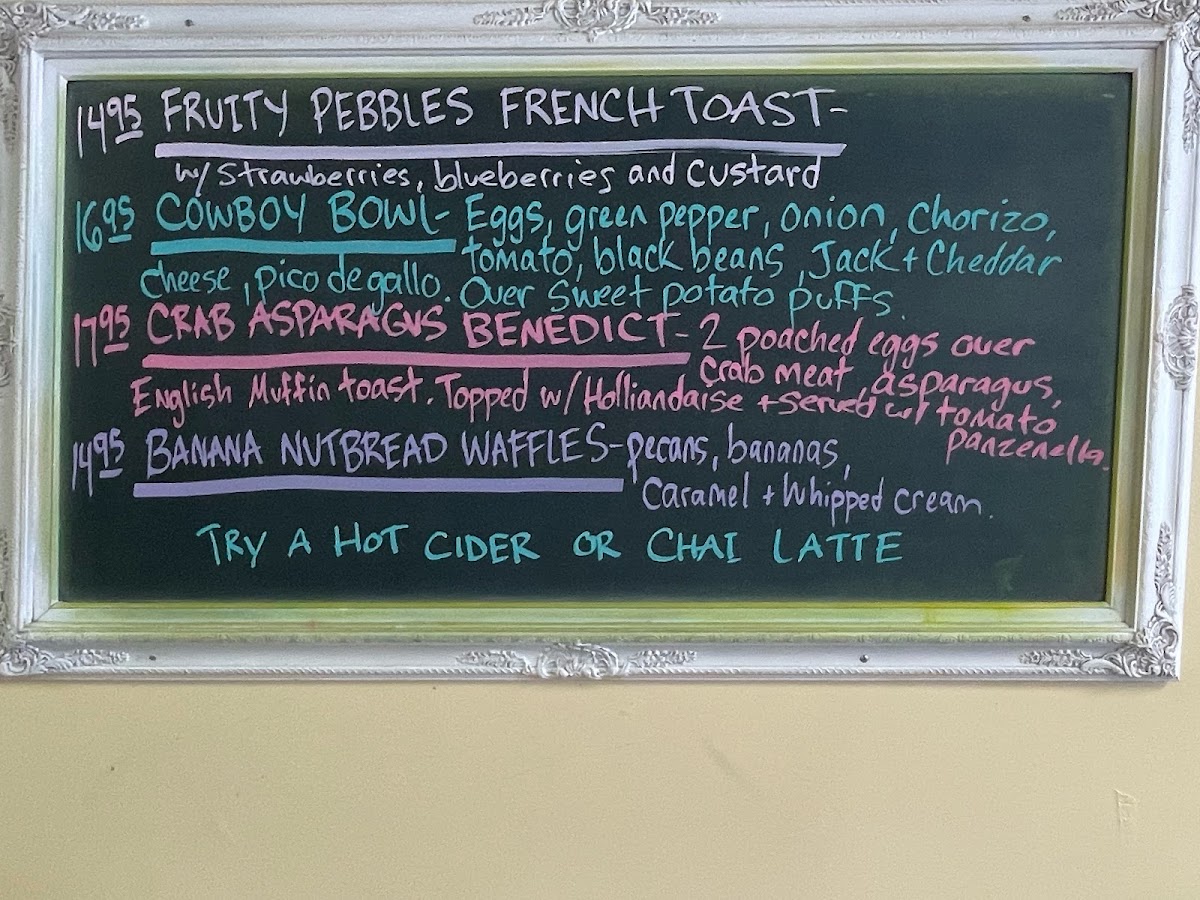 1495 FRUITY PEBBLES FRENCH TOAST-
w/ Strawberries, blueberries and Custard
1695 COWBOY BOWL- Eggs, green pepper, onion, Chorizo,
tomato, black beans, Jack + Cheddar
cheese, pico de gallo. Over Sweet potato puffs.
1795 CRAB ASPARAGUS BENEDICT- 2 poached eggs over
crab meat, asparagus,
English Muffin toast. Topped w/ Holliandaise + served w/ tomato
panzenella.
1495 BANANA NUTBREAD WAFFLES- pecans, bananas,
Caramel + Whipped cream.
TRY A HOT CIDER OR CHAI LATTE